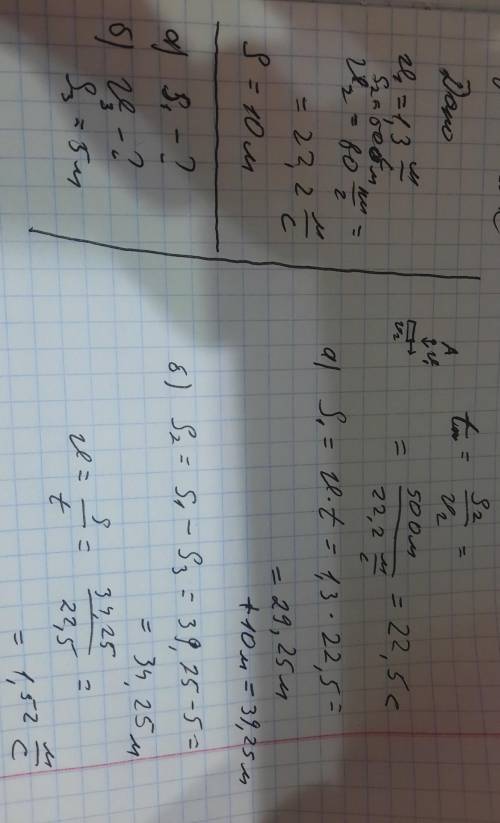 Дано
υ₁ = 1,3 м/с
S₂ = 500 м
υ₂ = 80 км/г =
= 22,2 м/с
S = 10 м
а) S₁ - ?
б) υ₃ - ?
S₃ = 5 м
A
υ₁
υ₂
tₘ = S₂/υ₂ =
= 500м/22,2 м/с = 22,5 с
а) S₁ = υ·t = 1,3 · 22,5 =
= 29,25 м
+10 м = 39,25 м
б) S₂ = S₁ - S₃ = 39,25 - 5 =
= 34,25 м
υ = S/t = 34,25/22,5 =
= 1,52 м/с